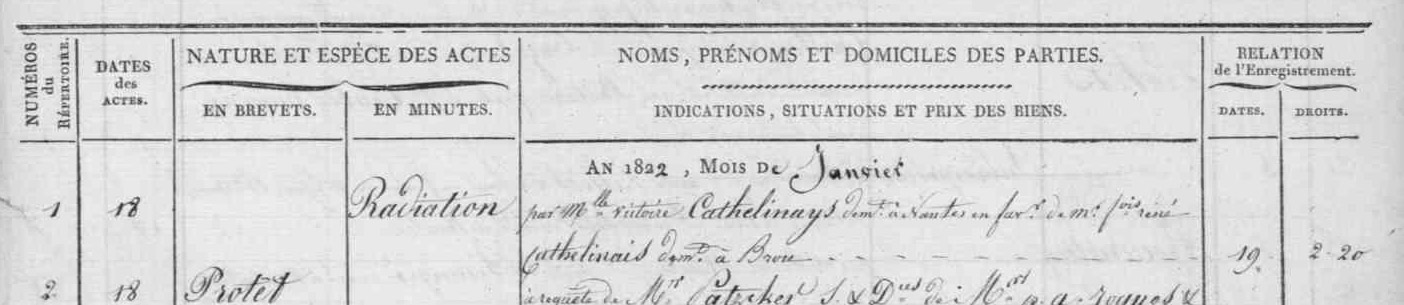 NUMEROS du RÉPERTOIRE.
DATES des ACTES.
NATURE ET ESPÈCE DES ACTES
EN BREVETS.
EN MINUTES.
NOMS, PRÉNOMS ET DOMICILES DES PARTIES.
INDICATIONS, SITUATIONS ET PRIX DES BIENS.
RELATION
de l'Enregistrement.
DATES.
DROITS.
AN 1822, MOIS DE Janvier
1 18 Radiation par Mlle victoire Cathelinays demt. à Nantes en favr. de mr. fois réné
Cathelinais demt. à Brou 19. 2-20
2 18 Protêt à requête de Mrs S. & D de Mrs p. a.